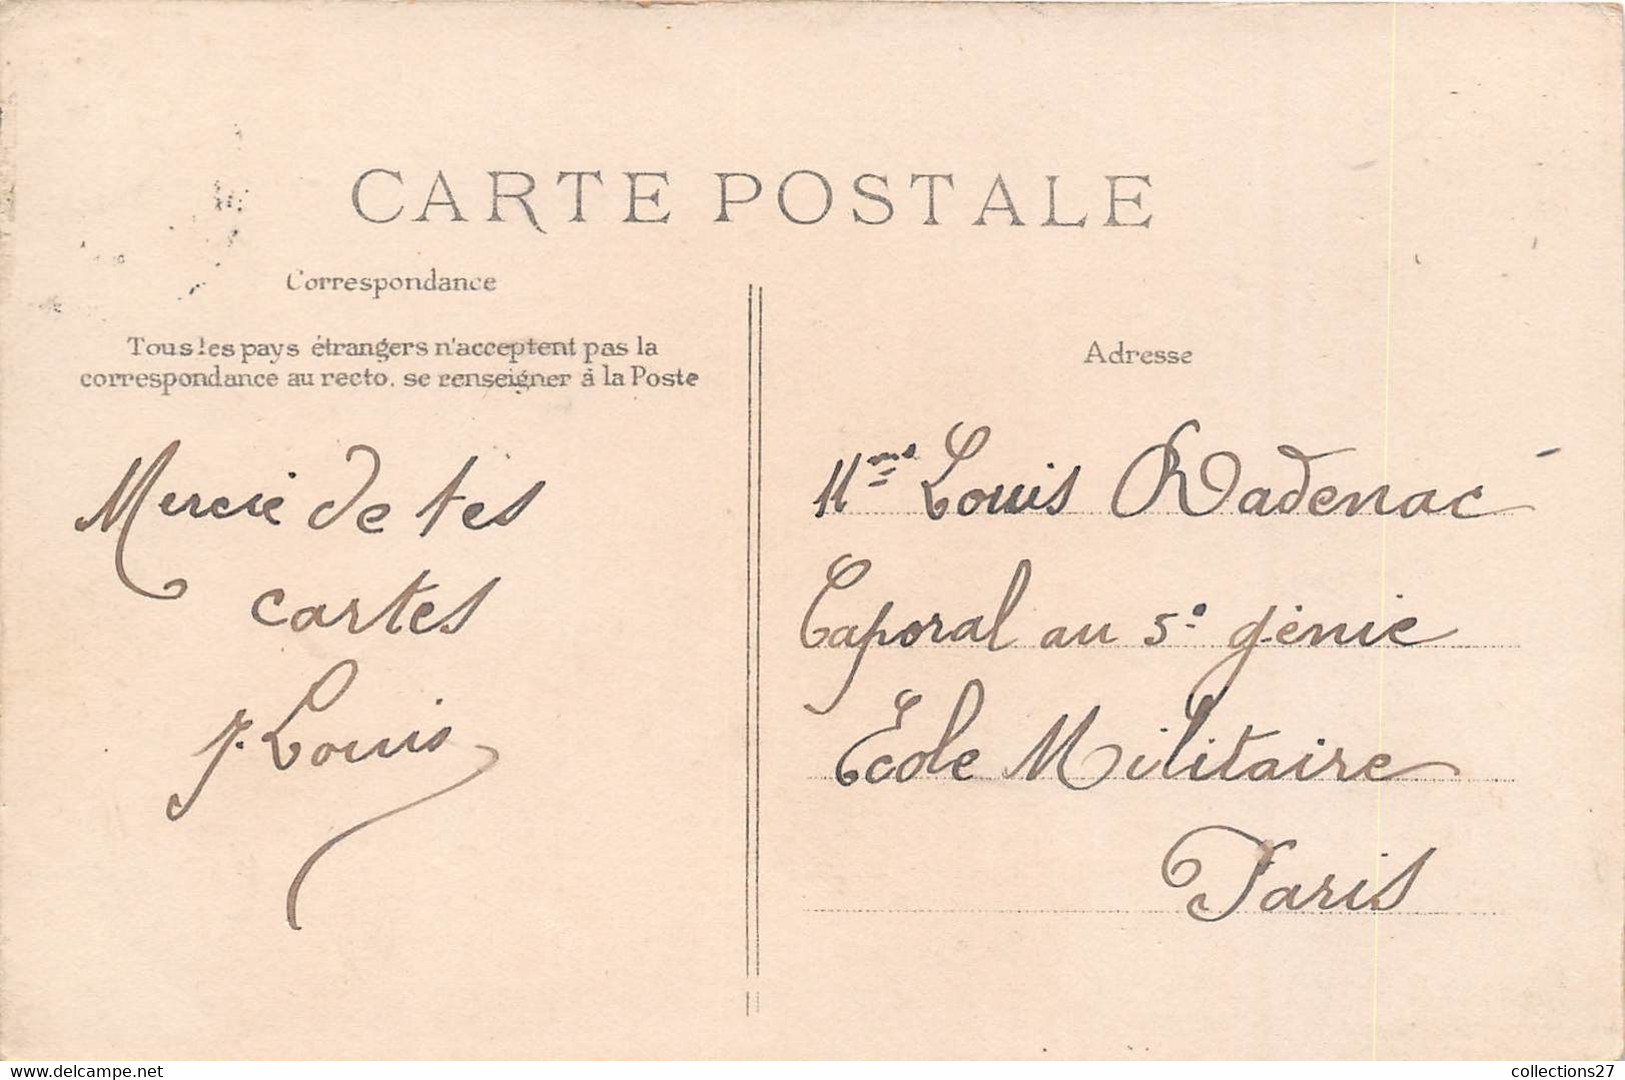 CARTE POSTALE
Correspondance
Tous les pays étrangers n'acceptent pas la
correspondance au recto, se renseigner à la Poste
Mercie de tes
cartes
J. Louis
Adresse
Mme Louis Radenac
Caporal au 5e génie
École Militaire
Paris
www.delcampe.net
collections27